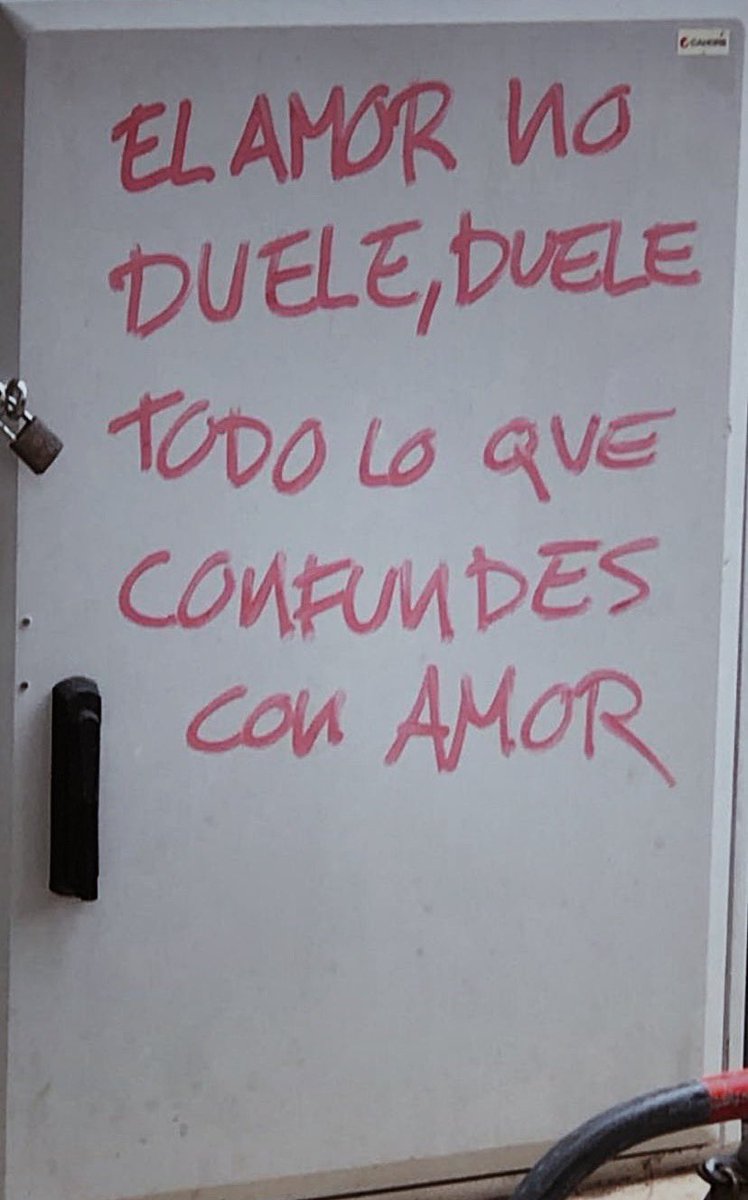 EL AMOR NO
DUELE, DUELE
TODO LO QUE
CONFUNDES
CON AMOR